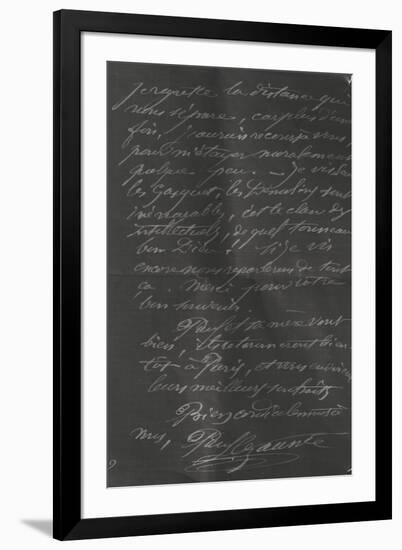 je regrette la distance qui
nous sépare, car plus d'une
fois, j'aurais recours à vous
pour m'étayer moralement
quelque peu. — Je vis
les Gasquet, les Demolins sont
inénarrables, c'est le clan des
intellectuels, de quel tonneau
bon Dieu! Si je vis
encore nous reparlerons de tout
ça. Merci pour votre
bon souvenir.
Paul et sa mère vont
bien, ils retourneront bien
tôt à Paris, et vous envoient
leurs meilleurs souhaits
Bien cordialement à
vous, Paul Cezanne